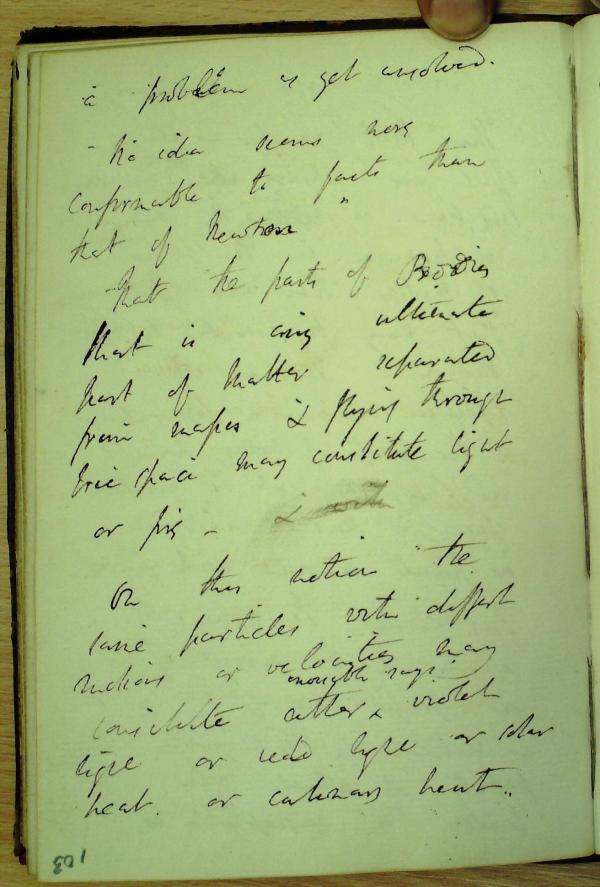 a problem as yet unsolved.
- No idea seems more
conformable to facts than
that of Newton
- That the parts of Bodies
that is any ultimate
part of Matter separated
from masses & flying through
free space may constitute light
or fire -
On this notion the
same particles with differt
motions or velocities may
invisible rays
constitute either violet
light or red light or solar
heat. or culinary heart..
103